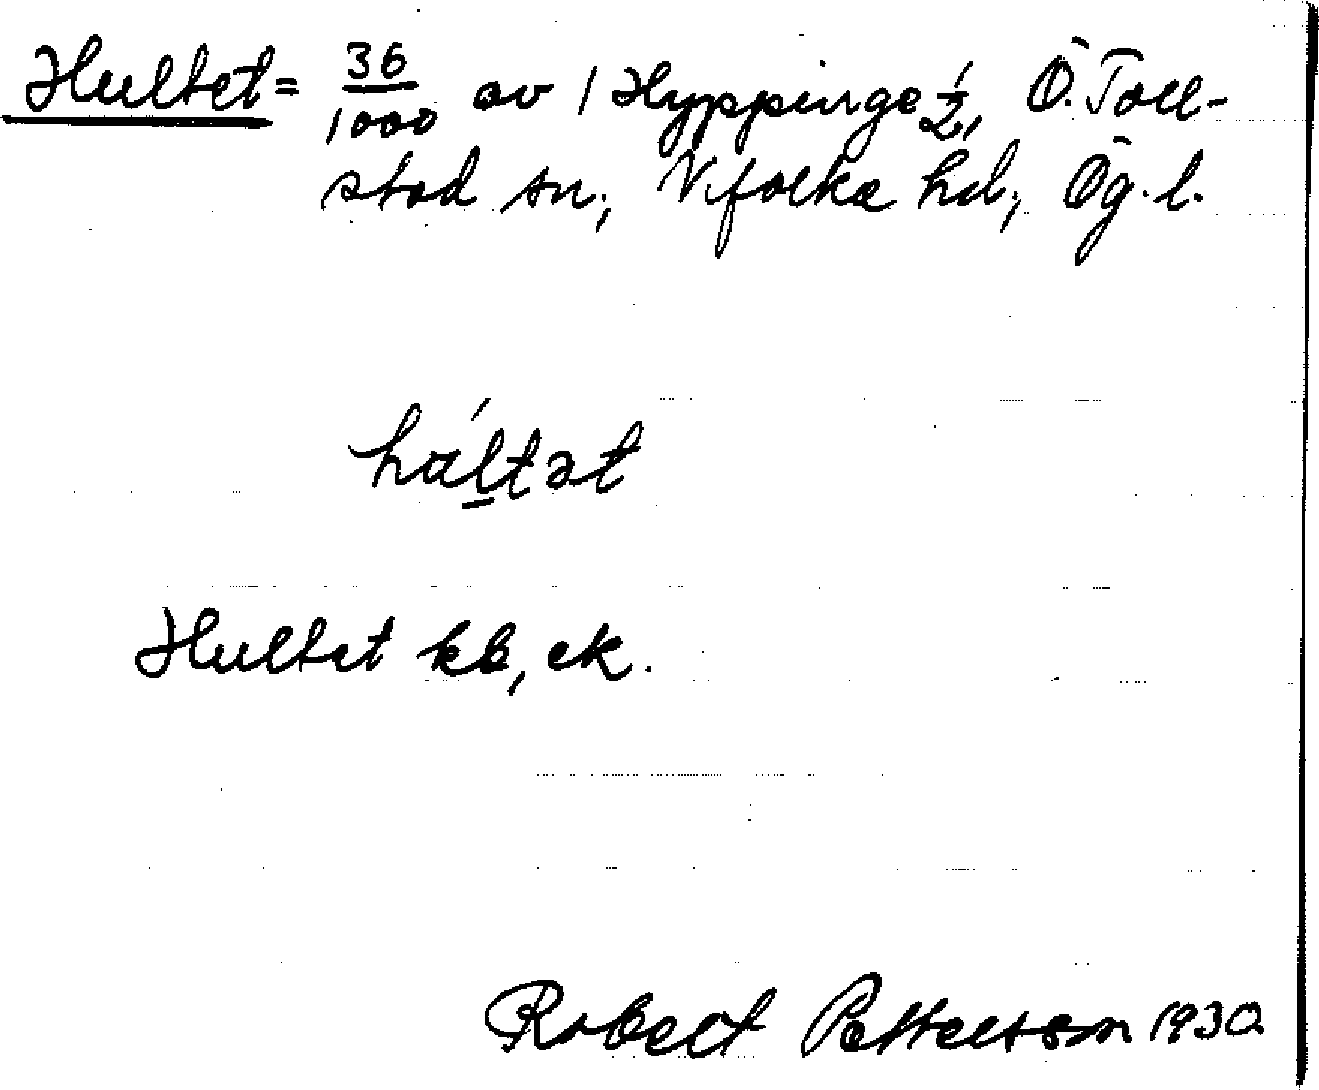 Hultet = 36/1000 av 1 Hyppinge 1/2, Ö. Toll-
stad sn., Vifolka hd, Ög. l.
háltət
Hultet kb, ek.
Robert Pettersson 1930